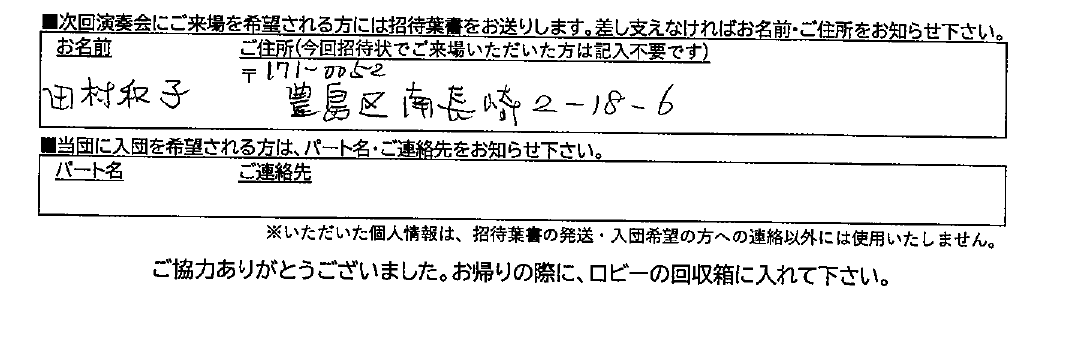 ■次回演奏会にご来場を希望される方には招待葉書をお送りします。差し支えなければお名前・ご住所をお知らせ下さい。
お名前 ご住所(今回招待状でご来場いただいた方は記入不要です)
〒171-0052
田村和子 豊島区南長崎2-18-6
■当団に入団を希望される方は、パート名・ご連絡先をお知らせ下さい。
パート名 ご連絡先
※いただいた個人情報は、招待葉書の発送・入団希望の方への連絡以外には使用いたしません。
ご協力ありがとうございました。お帰りの際に、ロビーの回収箱に入れて下さい。